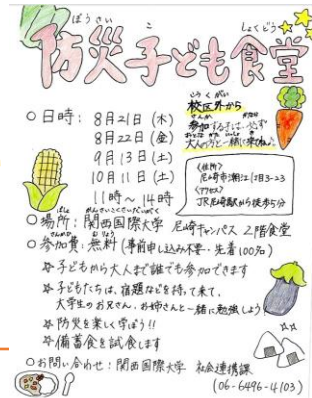 ぼうさい こ しょくどう
防災子ども食堂
○日時: 8月21日(木)
8月22日(金)
9月13日(土)
10月11日(土)
11時〜14時
こうくがい
校区外から
さんか
参加するときは、必ず
大人の方と一緒に来てね♪
〈住所〉
尼崎市潮江1丁目3-23
〈アクセス〉
JR尼崎駅から徒歩5分
ばしょ かんさいこくさいだいがく
○場所: 関西国際大学 尼崎キャンパス 2階食堂
○参加費: 無料(事前申し込み不要・先着100名)
☆子どもから大人まで誰でも参加できます
☆子どもたちは、宿題などを持って来て、
大学生のお兄さん、お姉さんと一緒に勉強しよう
☆防災を楽しく学ぼう!!
☆備蓄食を試食します
○お問い合わせ: 関西国際大学 社会連携課
(06-6496-4103)